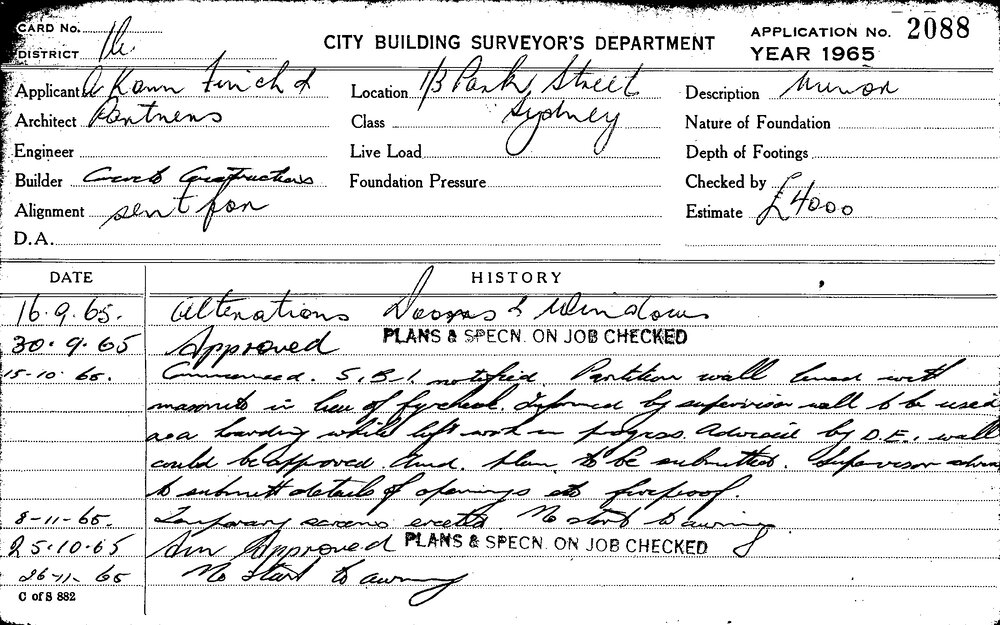 CARD No.
DISTRICT
CITY BUILDING SURVEYOR'S DEPARTMENT
APPLICATION No. 2088
YEAR 1965
Applicant A Kann Finch &
Architect Partners
Engineer
Builder Constructions
Alignment sent for
D.A.
Location 1/3 Park Street
Sydney
Class
Live Load
Foundation Pressure
Description Minor
Nature of Foundation
Depth of Footings
Checked by
Estimate £4000
DATE HISTORY
16.9.65. Alterations Doors & Windows
30.9.65 Approved PLANS & SPECN. ON JOB CHECKED
15-10-65. Commenced. S.B.I. notified. Partition wall lined with
masonite in lieu of fyrchek. Informed by supervisor wall to be used
as a hoarding while lift work in progress. Advised by D.E., wall
could be approved. Amd. plan to be submitted. Supervisor
to submit details of openings etc fireproof.
8-11-65. Temporary screens erected. No start to awning
25.10.65 Am Approved PLANS & SPECN. ON JOB CHECKED
26-11-65 No start to awning
C of S 882